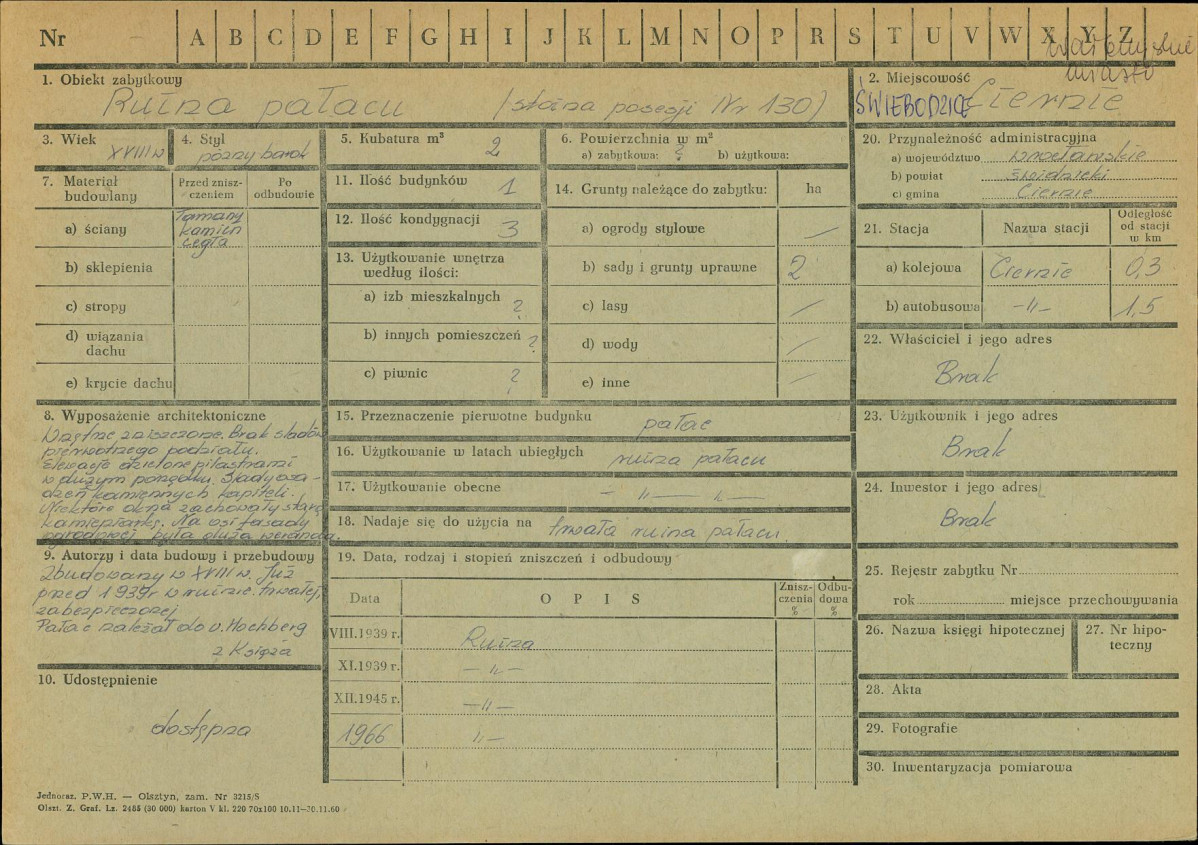 Nr
A B C D E F G H I J K L M N O P R S T U V W X Y Z
miasto
1. Obiekt zabytkowy
Ruina pałacu (stoina posesji Nr 130)
2. Miejscowość
ŚWIEBODZICE Ciernie
3. Wiek
XVIII w
4. Styl
późny barok
5. Kubatura m³
2
6. Powierzchnia w m²
a) zabytkowa: ? b) użytkowa:
20. Przynależność administracyjna
a) województwo wrocławskie
b) powiat świdnicki
c) gmina Ciernie
7. Materiał budowlany
Przed zniszczeniem
Po odbudowie
a) ściany
łamany
kamień
cegła
b) sklepienia
c) stropy
d) wiązania dachu
e) krycie dachu
11. Ilość budynków
1
12. Ilość kondygnacji
3
13. Użytkowanie wnętrza
według ilości:
a) izb mieszkalnych ?
b) innych pomieszczeń ?
c) piwnic ?
14. Grunty należące do zabytku:
ha
a) ogrody stylowe —
b) sady i grunty uprawne 2
c) lasy —
d) wody —
e) inne —
21. Stacja
Nazwa stacji
Odległość
od stacji
w km
a) kolejowa Ciernie 0,3
b) autobusowa -"- 1,5
22. Właściciel i jego adres
Brak
8. Wyposażenie architektoniczne
Wnętrze zniszczone. Brak śladów
pierwotnego podziału.
Elewacje dzielone pilastrami
w dużym porządku. Ślady osa-
dzeń kamiennych kapiteli.
Niektóre okna zachowały stare
kamieniarkę. Na osi fasady
ogrodowej była duża weranda.
15. Przeznaczenie pierwotne budynku
pałac
16. Użytkowanie w latach ubiegłych
ruina pałacu
17. Użytkowanie obecne
- " — " —
18. Nadaje się do użycia na
trwała ruina pałacu.
23. Użytkownik i jego adres
Brak
24. Inwestor i jego adres
Brak
9. Autorzy i data budowy i przebudowy
Zbudowany w XVIII w. Już
przed 1939r w ruinie trwałej,
zabezpieczonej
Pałac należał do v. Hochberg
z Książa
19. Data, rodzaj i stopień zniszczeń i odbudowy
Data
O P I S
Zniszczenia
%
Odbudowa
%
VIII.1939 r. Ruina
XI.1939 r. — " —
XII.1945 r. — " —
1966 " —
25. Rejestr zabytku Nr
rok miejsce przechowywania
26. Nazwa księgi hipotecznej
27. Nr hipoteczny
10. Udostępnienie
dostępna
28. Akta
29. Fotografie
30. Inwentaryzacja pomiarowa
Jednoraz. P.W.H. — Olsztyn, zam. Nr 3215/S
Olszt. Z. Graf. Lz. 2485 (30 000) karton V kl. 220 70x100 10.11—30.11.60